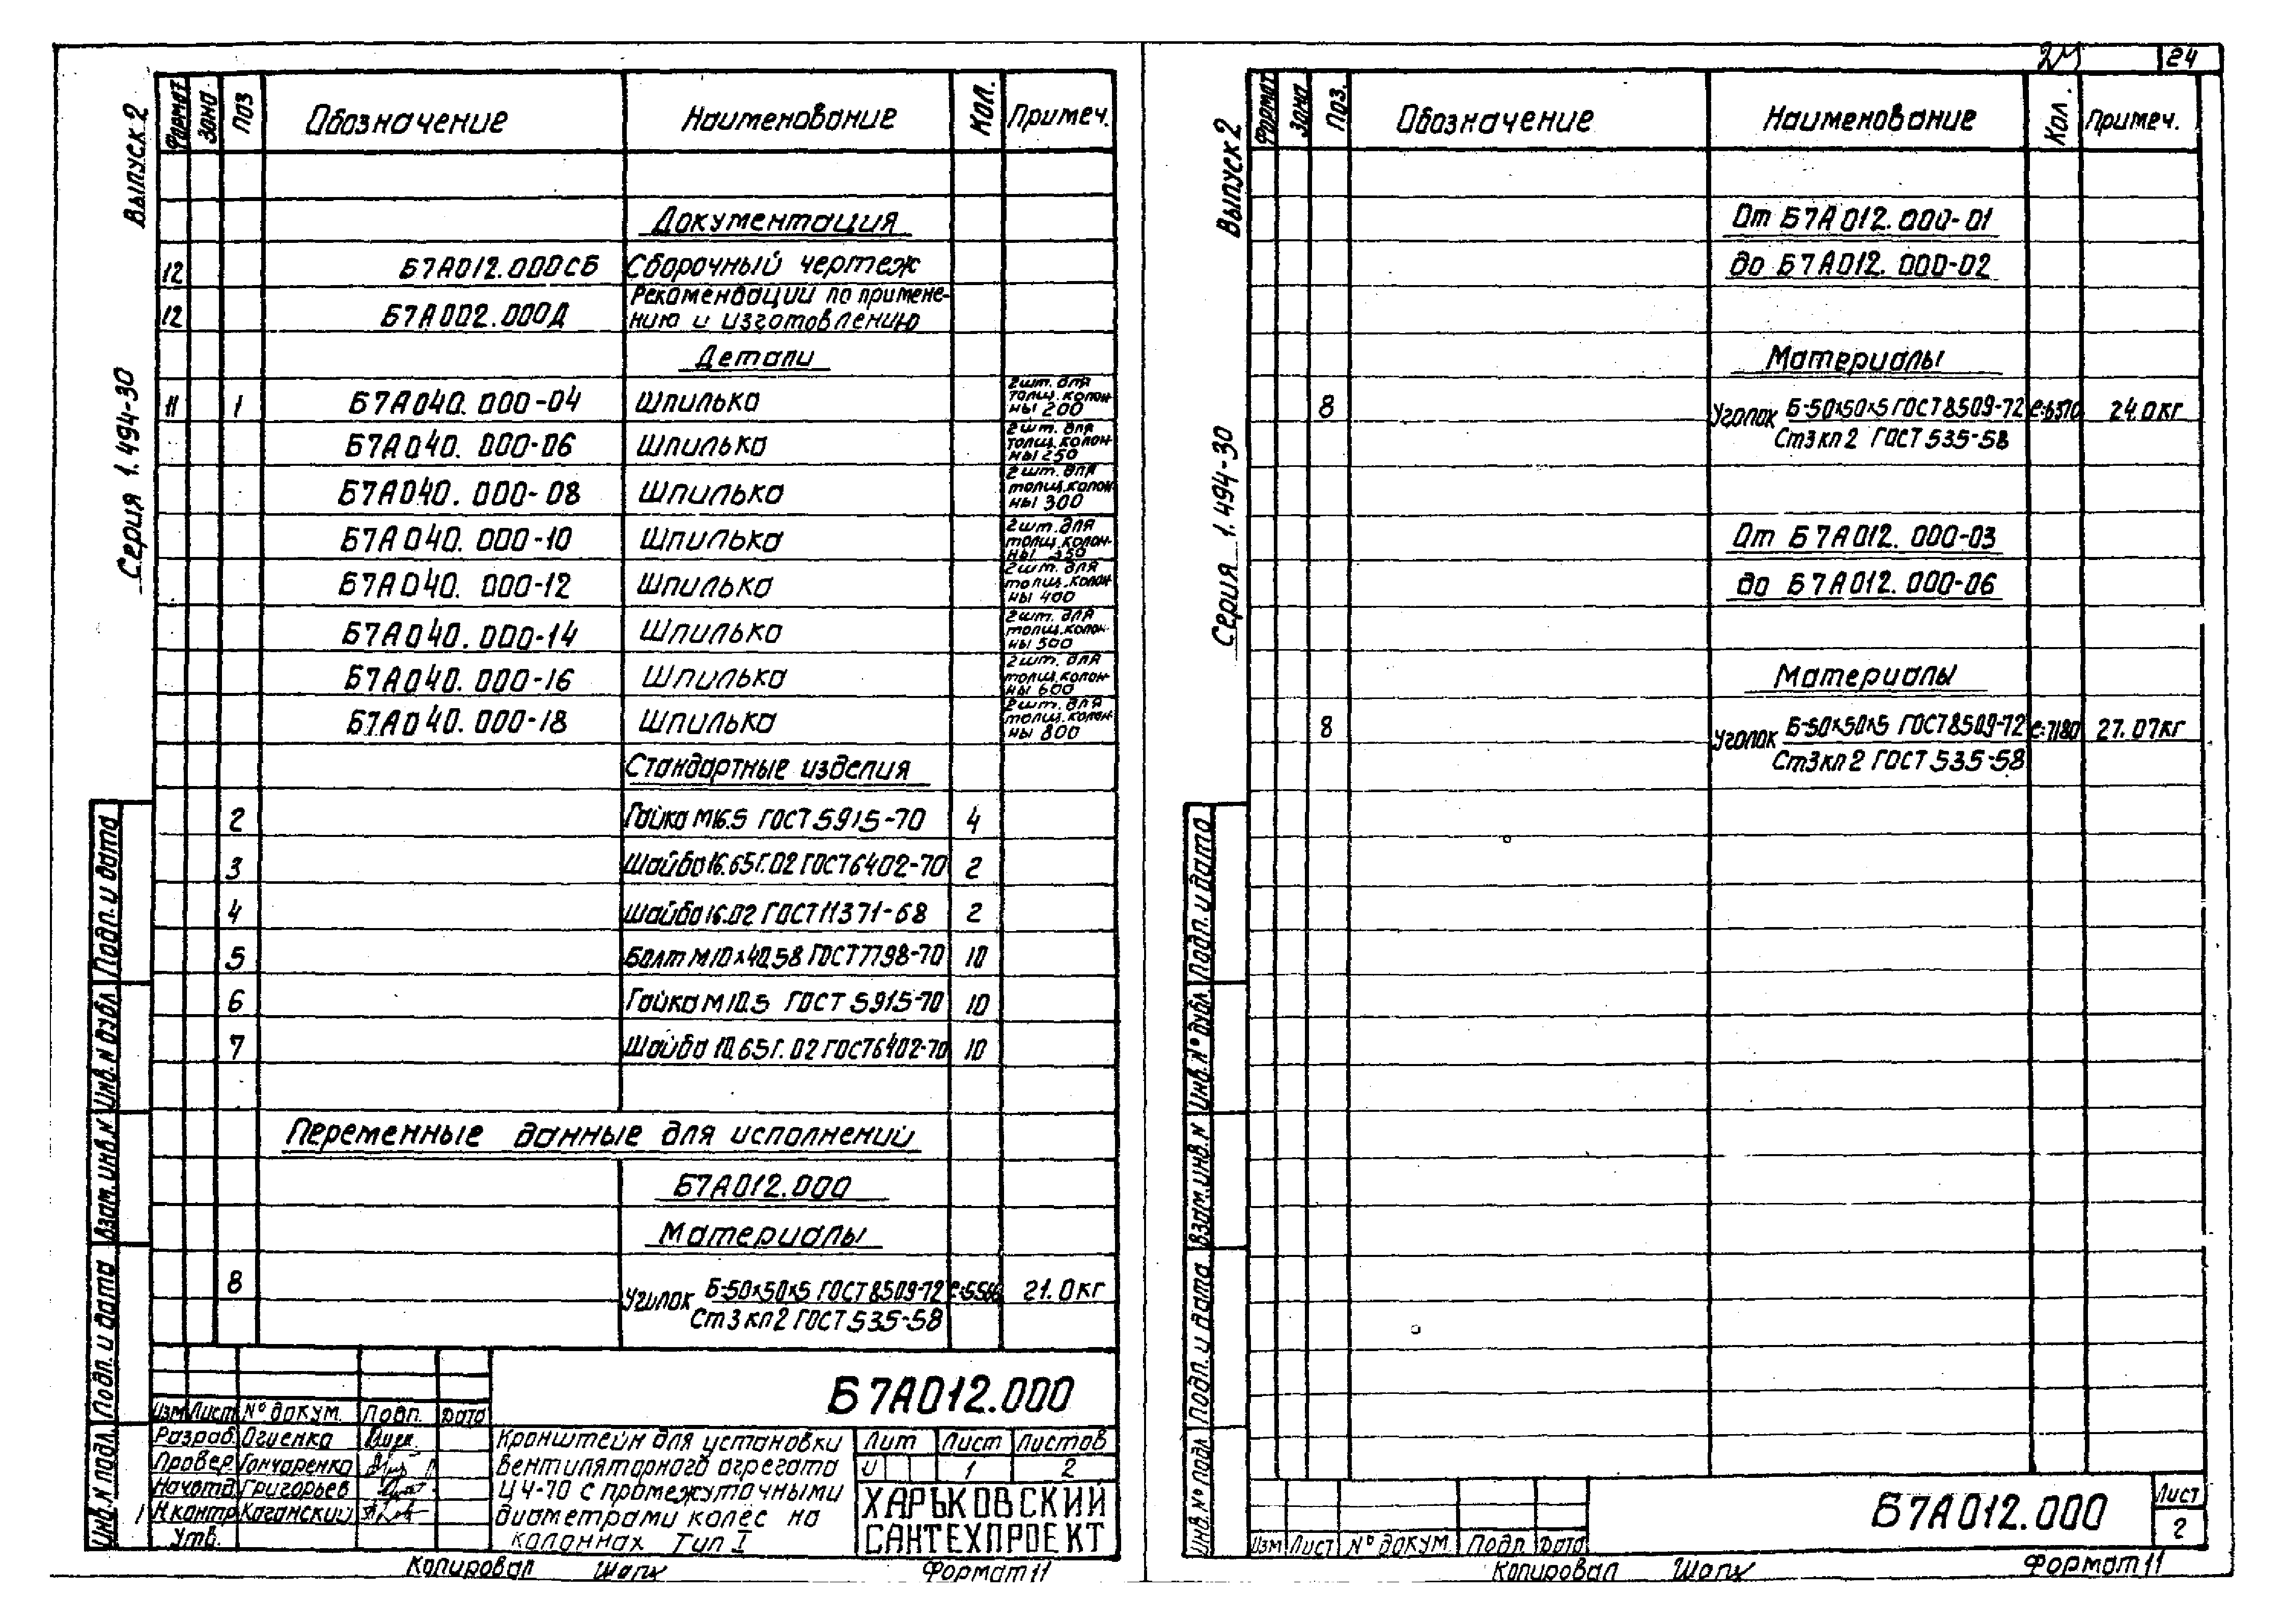 Выпуск 2
Серия 1.494-30
Формат Зона Поз Обозначение Наименование Кол. Примеч.
Документация
12 Б7А012.000СБ Сборочный чертеж
12 Б7А002.000Д Рекомендации по применению и изготовлению
Детали
11 1 Б7А040.000-04 Шпилька 2 шт. для толщ. колонны 200
Б7А040.000-06 Шпилька 2 шт. для толщ. колонны 250
Б7А040.000-08 Шпилька 2 шт. для толщ. колонны 300
Б7А040.000-10 Шпилька 2 шт. для толщ. колонны 350
Б7А040.000-12 Шпилька 2 шт. для толщ. колонны 400
Б7А040.000-14 Шпилька 2 шт. для толщ. колонны 500
Б7А040.000-16 Шпилька 2 шт. для толщ. колонны 600
Б7А040.000-18 Шпилька 2 шт. для толщ. колонны 800
Стандартные изделия
2 Гайка М16.5 ГОСТ 5915-70 4
3 Шайба 16.65Г.02 ГОСТ 6402-70 2
4 Шайба 16.02 ГОСТ 11371-68 2
5 Болт М10×40.58 ГОСТ 7798-70 10
6 Гайка М10.5 ГОСТ 5915-70 10
7 Шайба 10.65Г.02 ГОСТ 6402-70 10
Переменные данные для исполнений
Б7А012.000
Материалы
8 Уголок Б-50×50×5 ГОСТ 8509-72 21.0кг
Ст3кп2 ГОСТ 535-58
Б7А012.000
Изм Лист № докум. Подп. Дата
Разраб. Огиенко
Провер. Гончаренко
Нач.отд. Григорьев
Н.контр. Каганский
Утв.
Кронштейн для установки
вентиляторного агрегата
Ц4-70 с промежуточными
диаметрами колес на
колоннах Тип I
Лит Лист Листов
И 1 2
ХАРЬКОВСКИЙ
САНТЕХПРОЕКТ
Копировал Формат 11
Инв. N подл. Подп. и дата Взам. инв. N Инв. N дубл. Подп. и дата
24 24
Выпуск 2
Серия 1.494-30
Формат Зона Поз. Обозначение Наименование Кол. Примеч.
От Б7А012.000-01
до Б7А012.000-02
Материалы
8 Уголок Б-50×50×5 ГОСТ 8509-72 ℓ=6370 24.0кг
Ст3кп2 ГОСТ 535-58
От Б7А012.000-03
до Б7А012.000-06
Материалы
8 Уголок Б-50×50×5 ГОСТ 8509-72 ℓ=7180 27.07кг
Ст3кп2 ГОСТ 535-58
Б7А012.000 Лист
2
Изм Лист № докум. Подп Дата
Копировал Формат 11
Инв. № подл. Подп. и дата Взам. инв. N Инв. № дубл. Подп. и дата